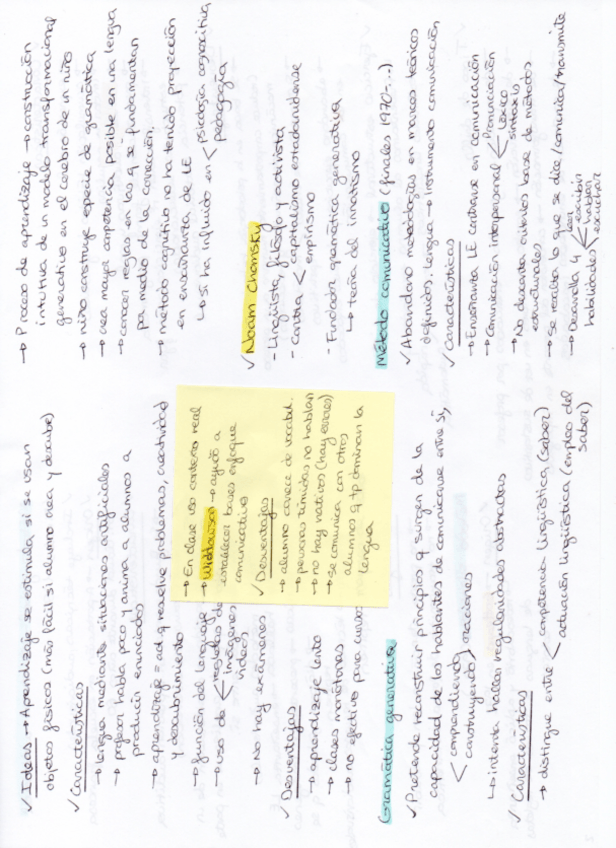 ✓ Ideas → Aprendizaje se estimula si se usan
objetos físicos (más fácil si alumno crea y descubre)
✓ Características
→ lengua mediante situaciones artificiales
→ profesor habla poco y anima a alumnos a
producir enunciados
→ aprendizaje = act. q resuelve problemas, creatividad
y descubrimiento
→ función del lenguaje
→ uso de < regletas de
imágenes
vídeos
→ No hay exámenes
✓ Desventajas
→ aprendizaje lento
→ clases monótonas
→ no efectivo para cursos
→ En clase uso contexto real
→ Widdowson → ayudó a
establecer bases enfoque
comunicativo
✓ Desventajas
→ alumno carece de vocabul.
→ personas tímidas no hablan
→ no hay nativos (hay errores)
→ se comunica con otros
alumnos q tp dominan la
lengua
Gramática generativa
✓ Pretende reconstruir principios q surgen de la
capacidad de los hablantes de comunicarse entre sí,
< comprendiendo
construyendo > oraciones
↳ intenta hallar regularidades abstractas
✓ Características
→ distingue entre < competencia lingüística (saber)
actuación lingüística (empleo del
saber)
→ Proceso de aprendizaje → construcción
intuitiva de un modelo transformacional
generativo en el cerebro de un niño
→ niño construye especie de gramática
→ crea mayor competencia posible en una lengua
→ conocer reglas en las q se fundamentan
por medio de la corrección.
→ método cognitivo no ha tenido proyección
en enseñanza de LE
↳ sí ha influido en < psicología cognitiva
pedagogía
✓ Noam Chomsky
- Lingüista, filósofo y activista
- contra < capitalismo estadounidense
empirismo
- Fundador gramática generativa
↳ teoría del innatismo
Método comunicativo (finales 1970-...)
✓ Abandono metodologías en marcos teóricos
definidos. lengua → instrumento comunicación
✓ Características
→ Enseñanza LE centrarse en comunicación
→ Comunicación interpersonal < Pronunciación
léxico
sintaxis
→ No descarta cálculos base de métodos
estructurales
→ se resalta lo que se dice/comunica/transmite
→ Desarrolla 4
habilidades < leer
escribir
hablar
escuchar